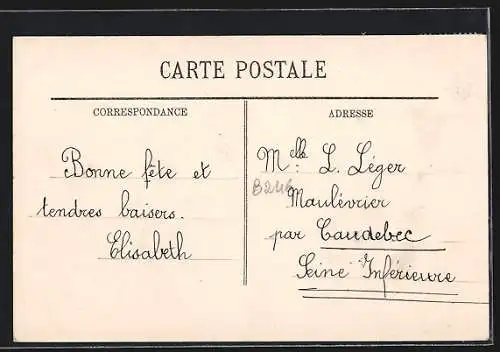 CARTE POSTALE
CORRESPONDANCE
Bonne fête et
tendres baisers.
Elisabeth
ADRESSE
Melle: L. Léger
B246
Maulévrier
par Caudebec
Seine Inférieure